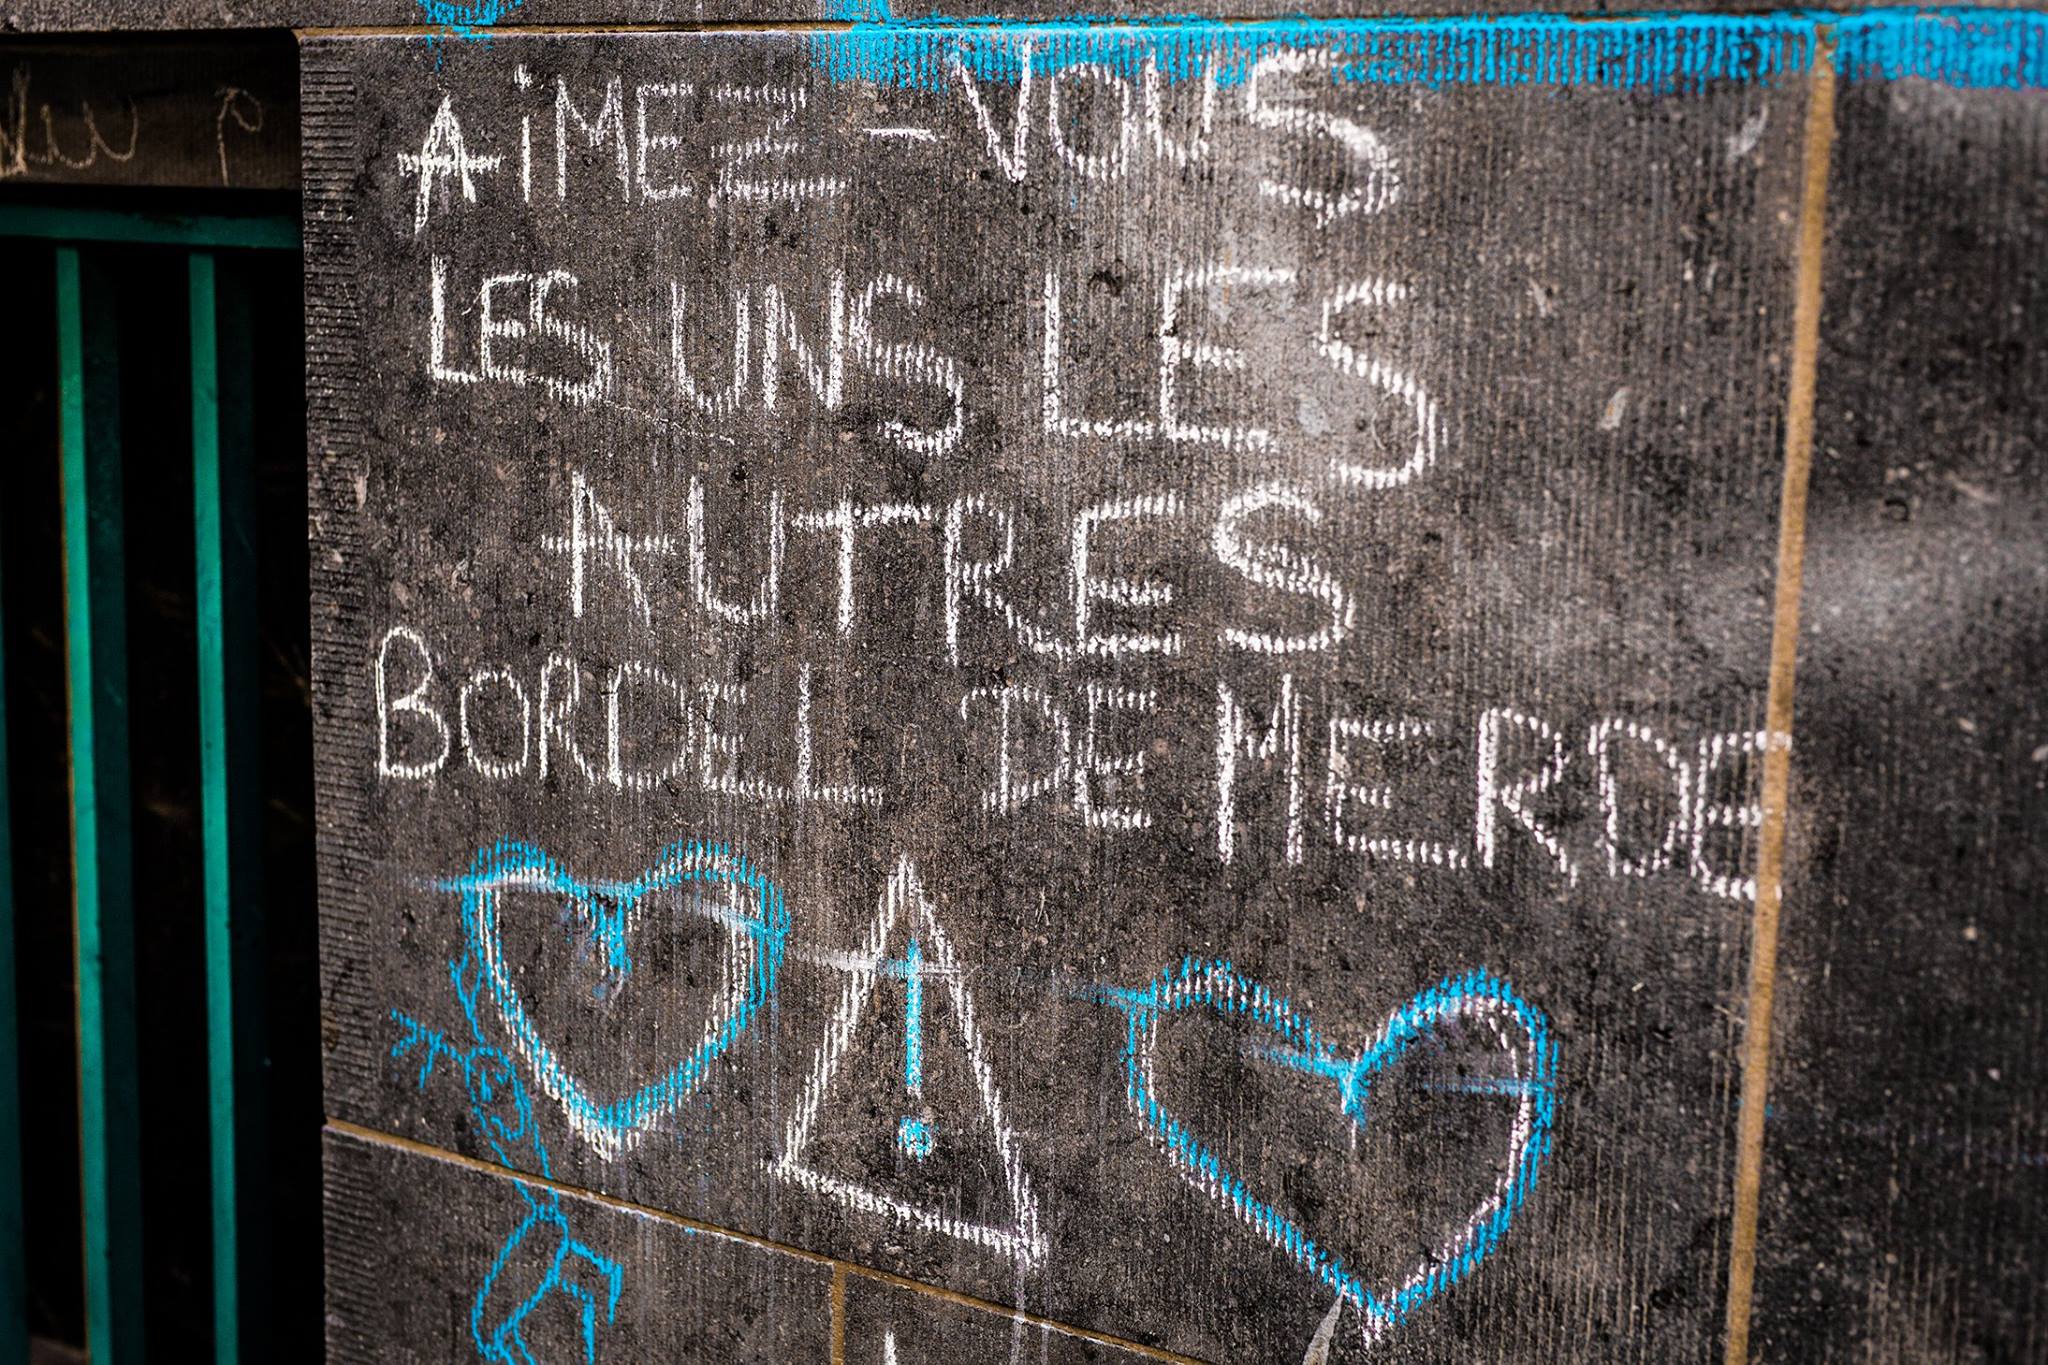 AiMEZ-VOUS
LES UNS LES
AUTRES
BORDEL DE MERDE
!